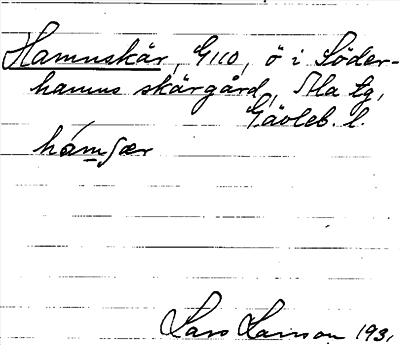 Hamnskär, G110, ö i Söder-
hamns skärgård, Ala tg,
Gävleb. l.
hámʃær
Lars Larsson 1931